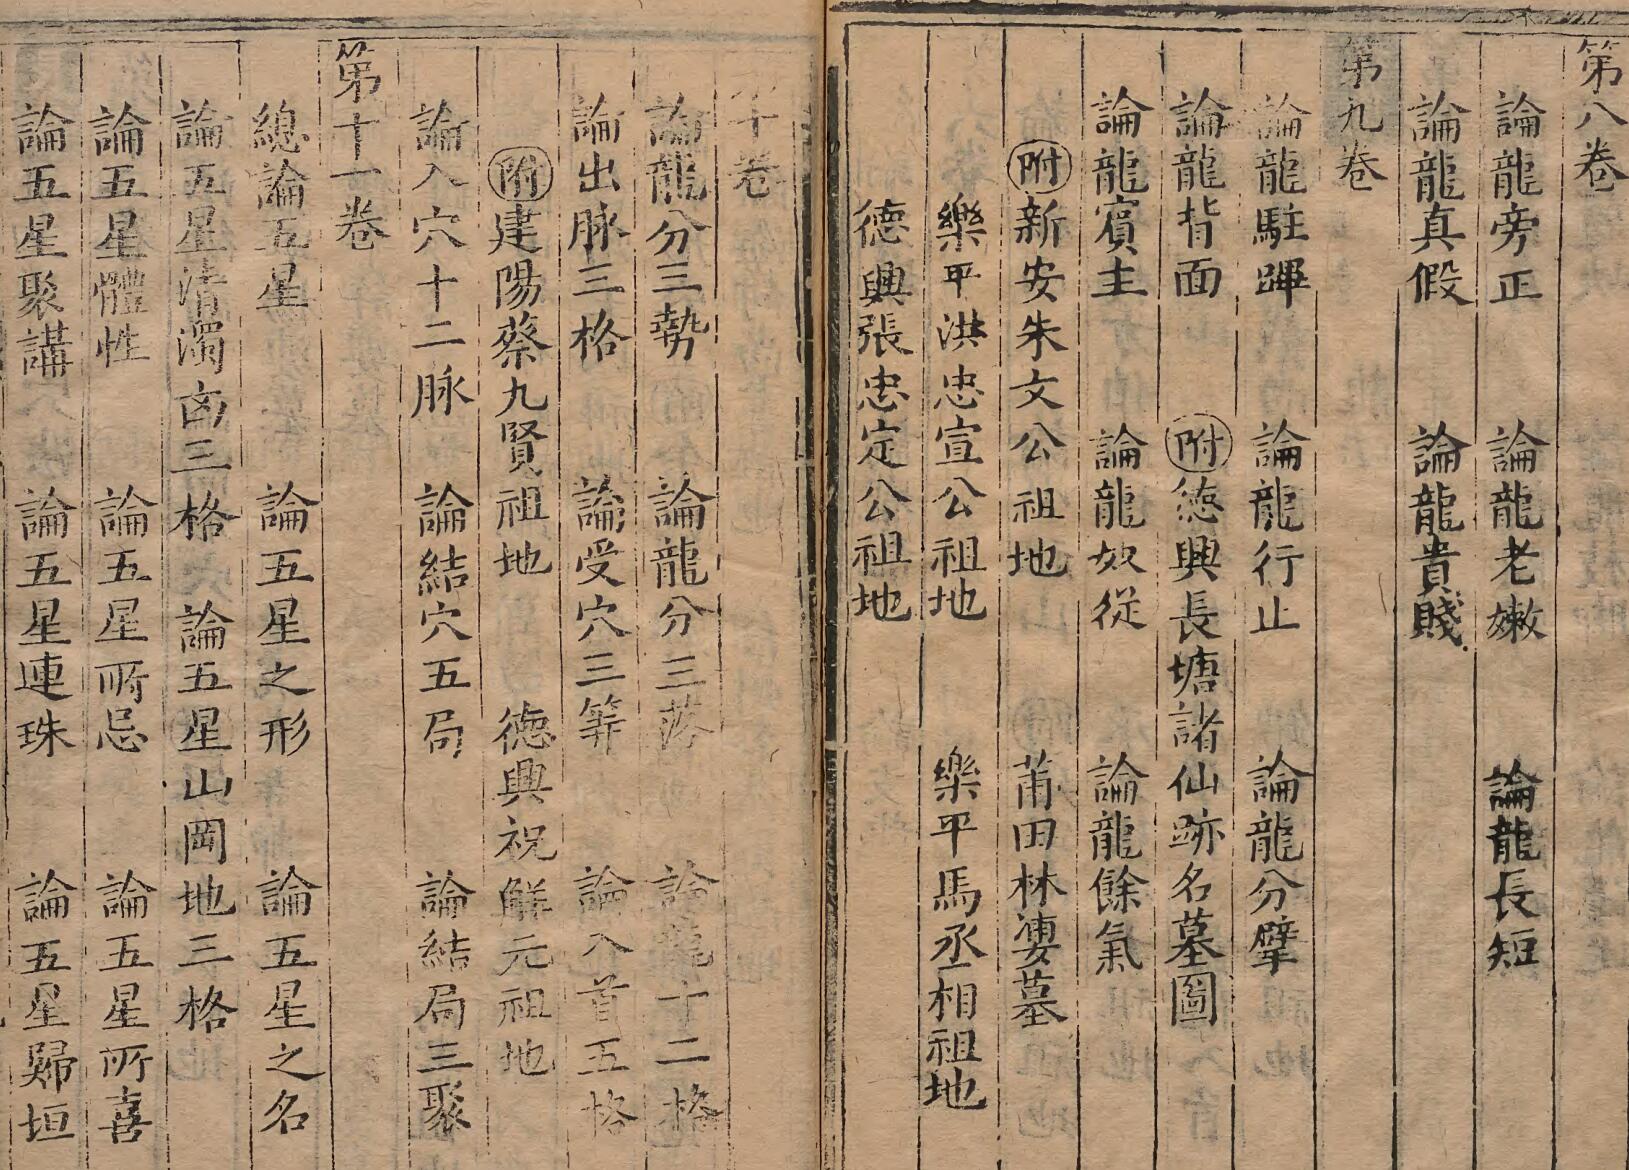 第八卷
論龍旁正 論龍老嫩 論龍長短
論龍真假 論龍貴賤
第九卷
論龍駐蹕 論龍行止 論龍分擘
論龍背面 附德興長塘諸仙跡名墓圖
論龍賓主 論龍奴從 論龍餘氣
附新安朱文公祖地 莆田林凄墓
樂平洪忠宣公祖地 樂平馬丞相祖地
德興張忠定公祖地
十卷
論龍分三勢 論龍分三落 論龍十二格
論出脉三格 論受穴三等 論入首五格
附建陽蔡九賢祖地 德興祝解元祖地
論入穴十二脉 論結穴五局 論結局三聚
第十一卷
總論五星 論五星之形 論五星之名
論五星清濁㐫三格 論五星山岡地三格
論五星體性 論五星所忌 論五星所喜
論五星聚講 論五星連珠 論五星歸垣